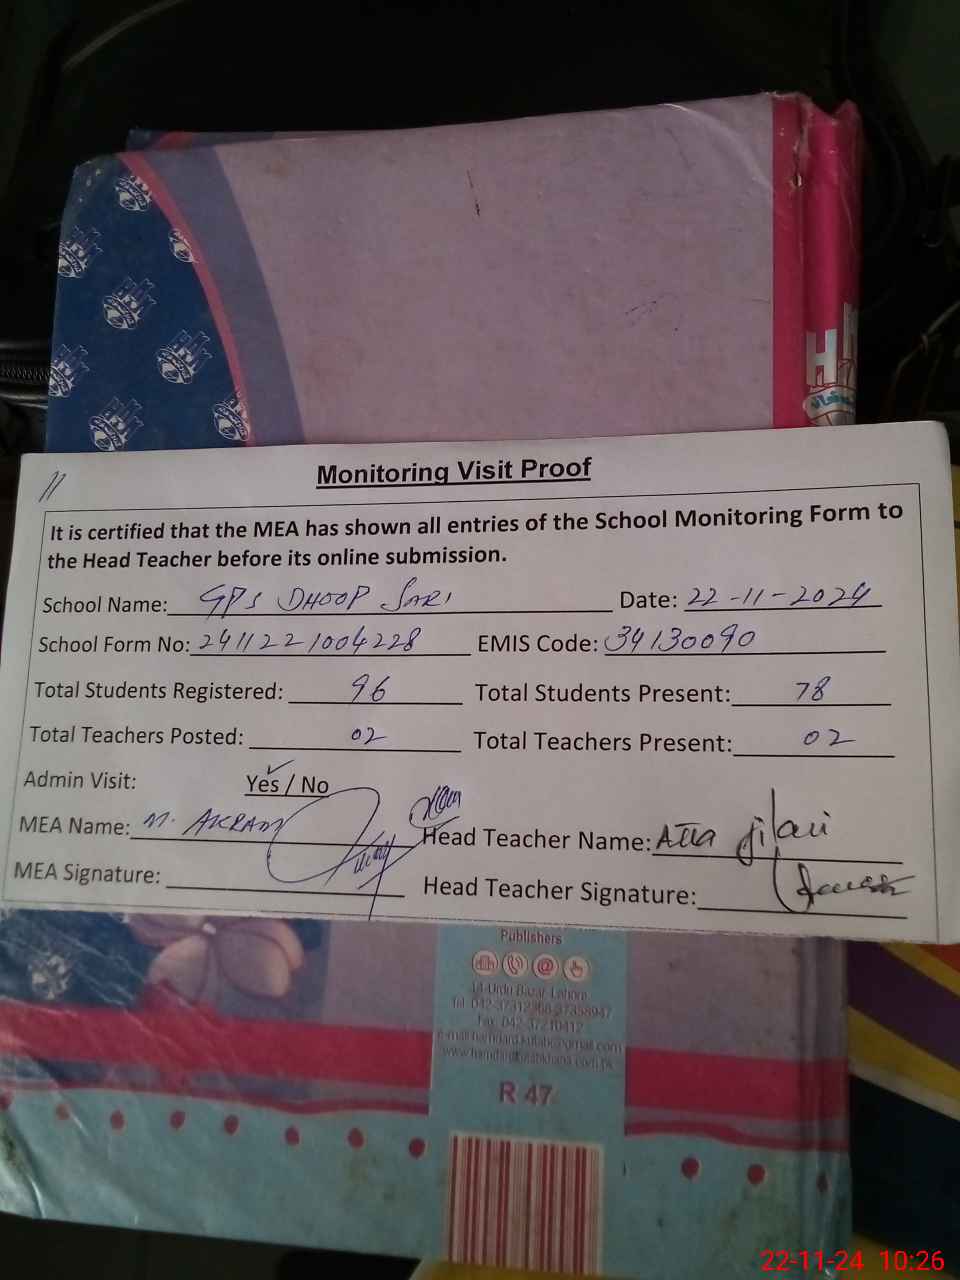 11
Monitoring Visit Proof
It is certified that the MEA has shown all entries of the School Monitoring Form to
the Head Teacher before its online submission.
School Name: GPS DHOOP SARI Date: 22-11-2024
School Form No: 2411221004228 EMIS Code: 34130090
Total Students Registered: 96 Total Students Present: 78
Total Teachers Posted: 02 Total Teachers Present: 02
Admin Visit: Yes / No
MEA Name: M. AKRAM Head Teacher Name: Atta jilani
MEA Signature: Head Teacher Signature:
Publishers
14-Urdu Bazar Lahore
Tel: 042-37312368-37358947
Fax: 042-37210412
R 47
22-11-24 10:26